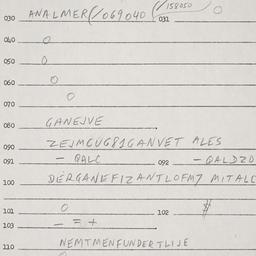 030 ANALMER(/069040 (/158050 031 O
040 O
050 O
060 O
070 O
080 GANEJVE
090 ZEJMGUG81GANVET ALES
091 — QALC 092 — QALDZO
100 DERGANEFIZANTLOFM7 MITALC
101 O 102 $
103 — = +
110 NEMTMENFUNDERTLIJE